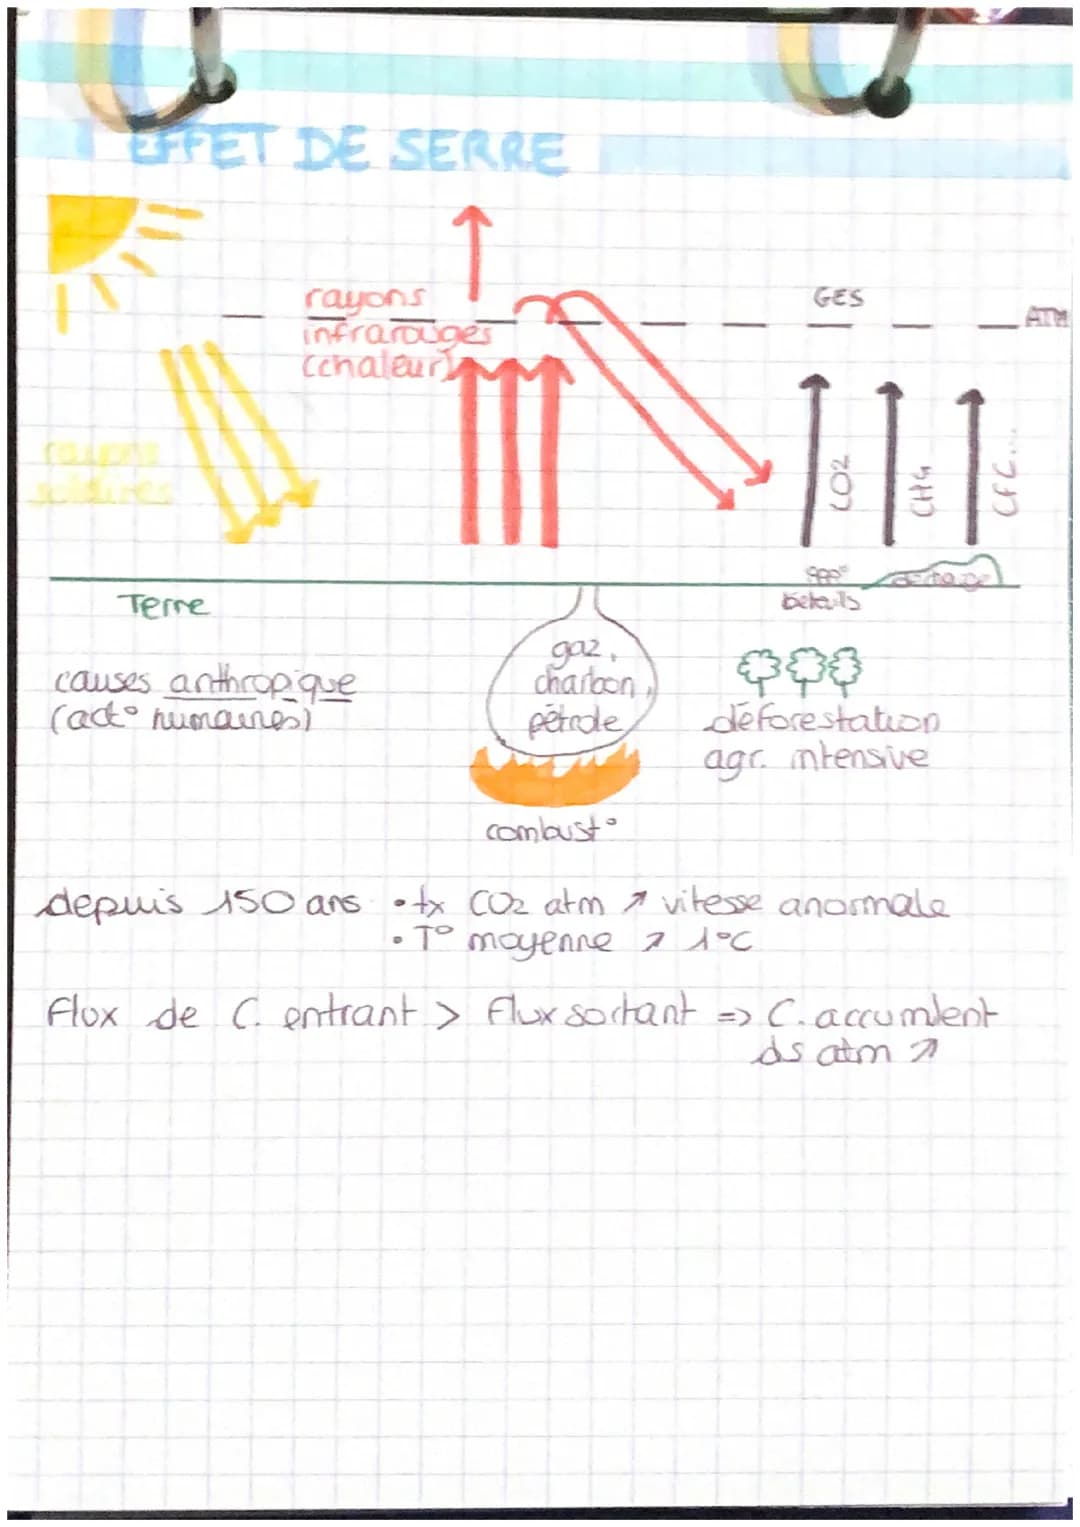 EFFET DE SERRE
GES
ATM
rayons
infrarouges
(chaleur)
rayons
solaires
CO2
CH4
CFC...
décharge
bétails
Terre
gaz,
charbon,
pétrole
causes anthropique
(act° humaines)
déforestation
agr. intensive
combust°
depuis 150 ans • tx CO2 atm ↗ vitesse anormale
• T° moyenne ↗ 1°C
Flux de C. entrant > Flux sortant => C. accumulent
ds atm ↗